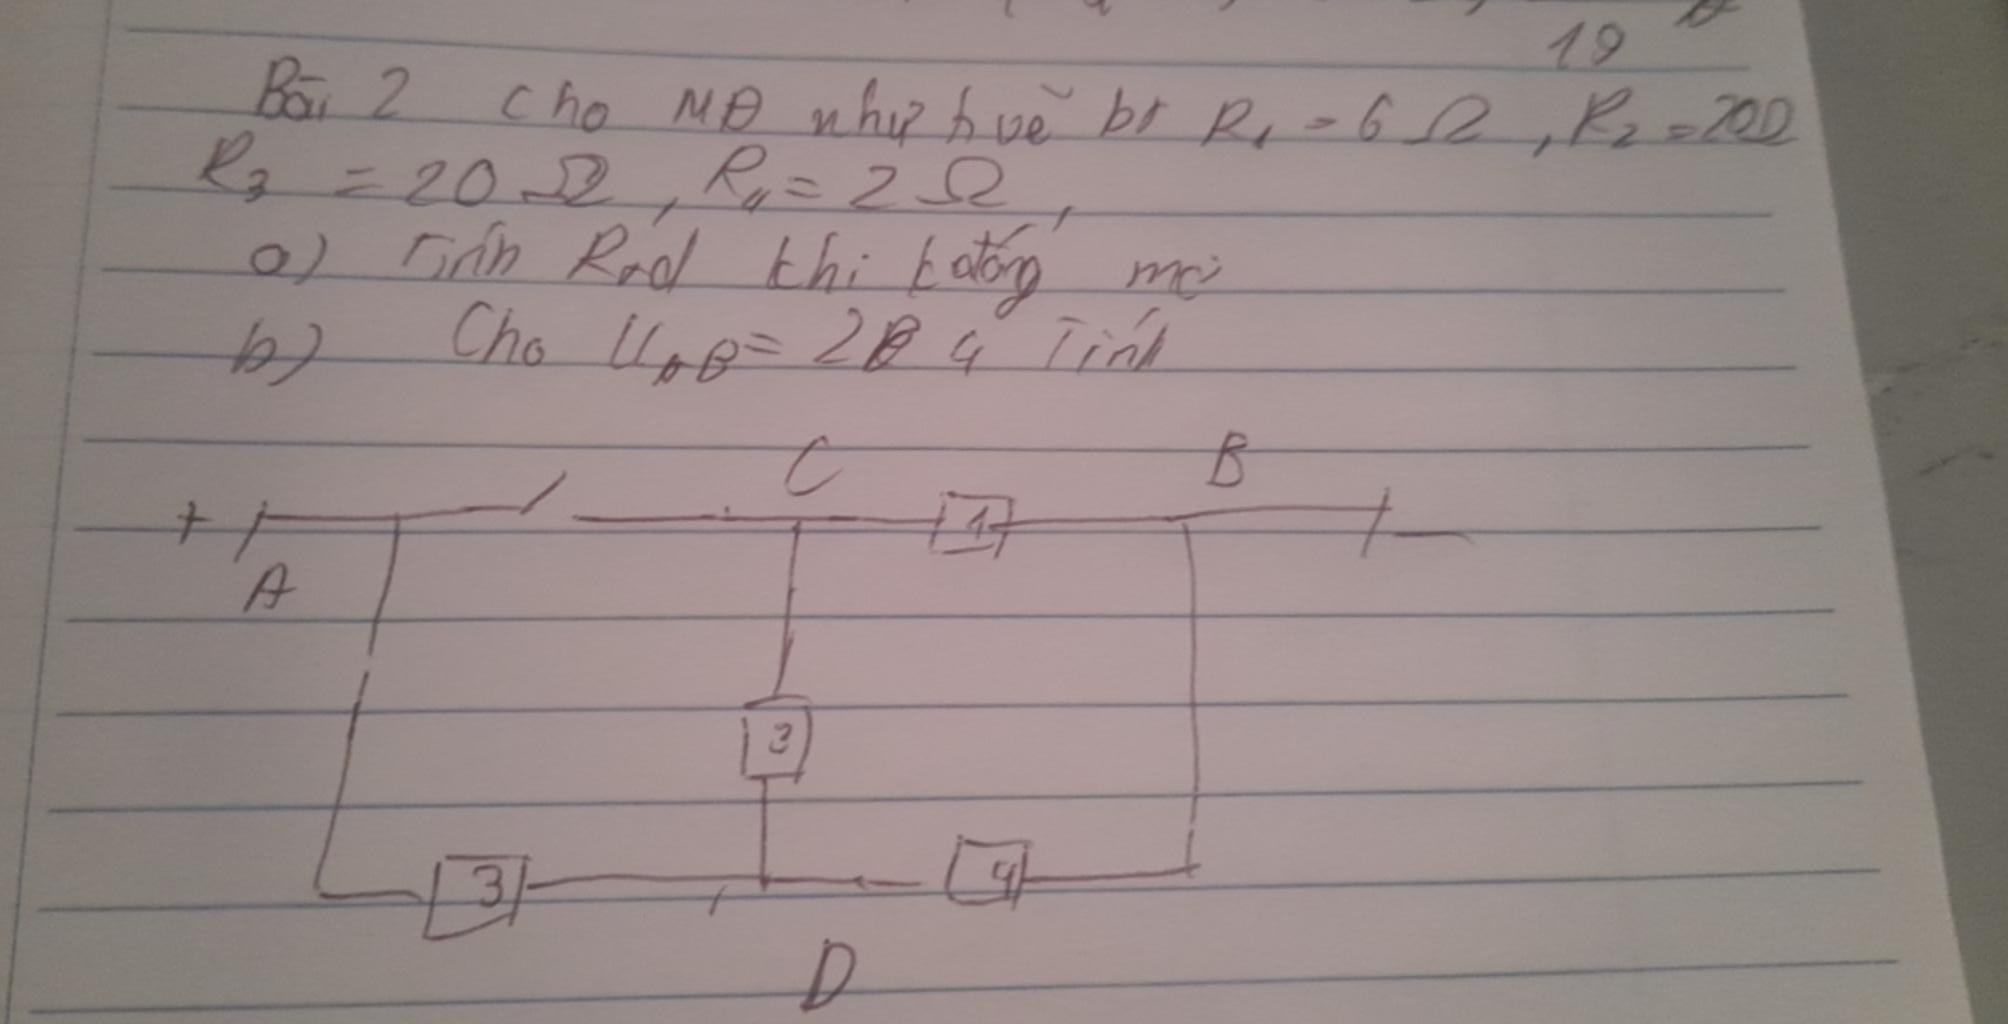 19
Bài 2 cho MĐ như h vẽ bt R₁ = 6 Ω, R₂ = 20Ω
R₃ = 20 Ω, R₄ = 2 Ω,
a) Tính Rtđ khi k đóng mở
b) Cho U_AB = 24 Tính
C B
+ 1 −
A
2
3 4
D